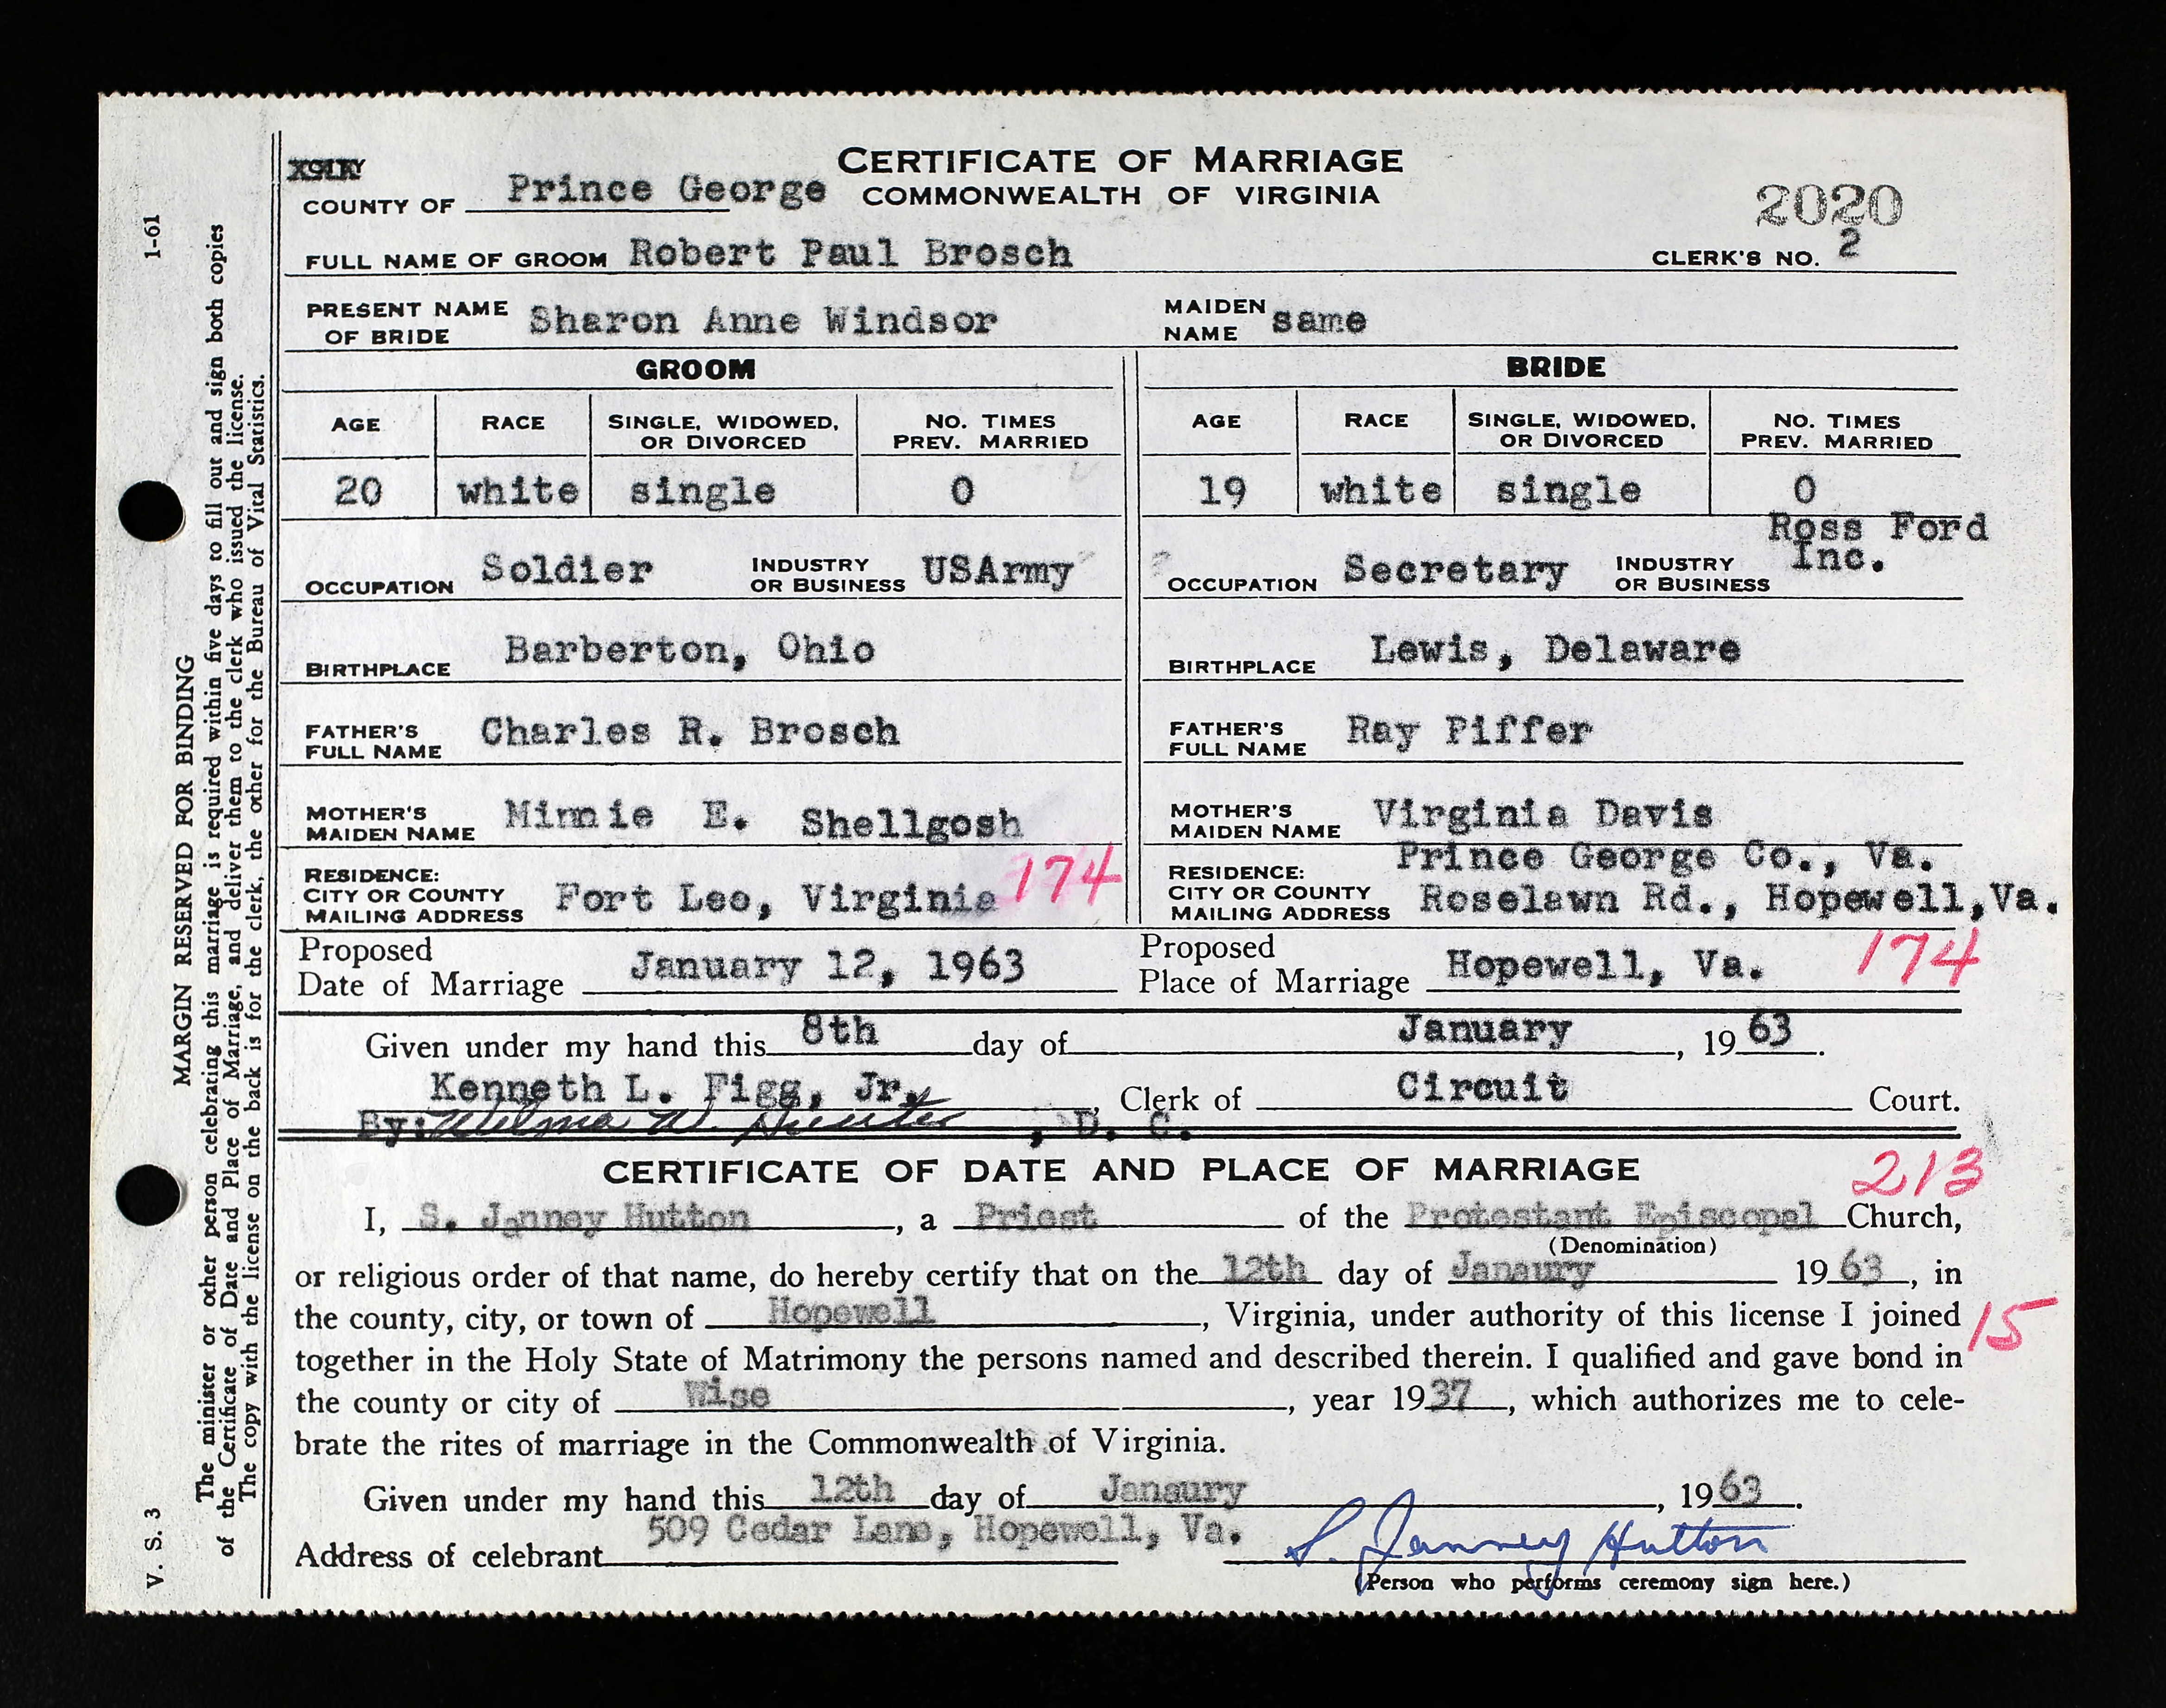 CERTIFICATE OF MARRIAGE
COUNTY OF Prince George COMMONWEALTH OF VIRGINIA
2020
FULL NAME OF GROOM Robert Paul Brosch CLERK'S NO. 2
PRESENT NAME OF BRIDE Sharon Anne Windsor MAIDEN NAME same
GROOM BRIDE
AGE RACE SINGLE, WIDOWED, OR DIVORCED NO. TIMES PREV. MARRIED AGE RACE SINGLE, WIDOWED, OR DIVORCED NO. TIMES PREV. MARRIED
20 white single 0 19 white single 0
OCCUPATION Soldier INDUSTRY OR BUSINESS USArmy OCCUPATION Secretary INDUSTRY OR BUSINESS Ross Ford Inc.
BIRTHPLACE Barberton, Ohio BIRTHPLACE Lewis, Delaware
FATHER'S FULL NAME Charles R. Brosch FATHER'S FULL NAME Ray Piffer
MOTHER'S MAIDEN NAME Minnie E. Shellgosh MOTHER'S MAIDEN NAME Virginia Davis
RESIDENCE: CITY OR COUNTY MAILING ADDRESS Fort Lee, Virginia 174 RESIDENCE: CITY OR COUNTY MAILING ADDRESS Prince George Co., Va. Roselawn Rd., Hopewell,Va.
Proposed Date of Marriage January 12, 1963 Proposed Place of Marriage Hopewell, Va. 174
Given under my hand this 8th day of January, 1963.
Kenneth L. Figg, Jr., Clerk of Circuit Court.
By: Wilma W. Hunter, D. C.
CERTIFICATE OF DATE AND PLACE OF MARRIAGE 213
I, S. Janney Hutton, a Priest of the Protestant Episcopal Church,
(Denomination)
or religious order of that name, do hereby certify that on the 12th day of Janaury 1963, in
the county, city, or town of Hopewell, Virginia, under authority of this license I joined 15
together in the Holy State of Matrimony the persons named and described therein. I qualified and gave bond in
the county or city of Wise, year 1937, which authorizes me to cele-
brate the rites of marriage in the Commonwealth of Virginia.
Given under my hand this 12th day of Janaury, 1963.
Address of celebrant 509 Cedar Lane, Hopewell, Va. S. Janney Hutton
(Person who performs ceremony sign here.)
V. S. 3 1-61
MARGIN RESERVED FOR BINDING
The minister or other person celebrating this marriage is required within five days to fill out and sign both copies
of the Certificate of Date and Place of Marriage, and deliver them to the clerk who issued the license.
The copy with the license on the back is for the clerk, the other for the Bureau of Vital Statistics.